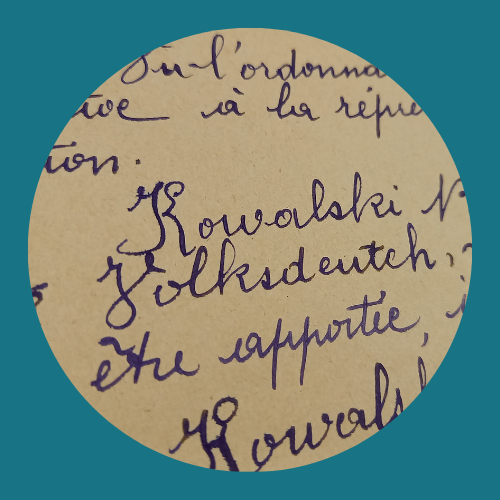 Vu l'ordonna
tive à la répre
tion.
Kowalski N
Volksdeutch,
être apportée, i
Kowalsk